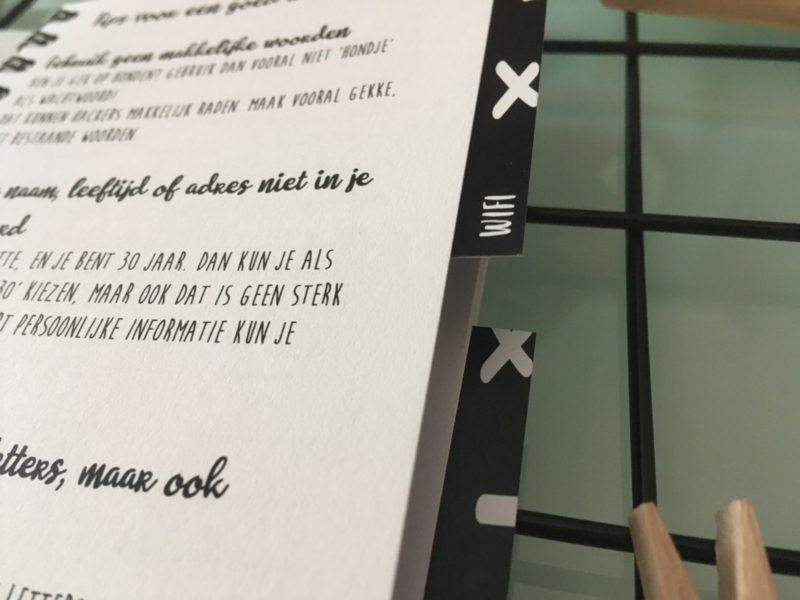 Tips voor een goed
Gebruik geen makkelijke woorden
BEN JE GEK OP HONDEN? GEBRUIK DAN VOORAL NIET 'HONDJE'
ALS WACHTWOORD!
DAT KUNNEN HACKERS MAKKELIJK RADEN. MAAK VOORAL GEKKE,
T BESTAANDE WOORDEN.
naam, leeftijd of adres niet in je
rd
TTE, EN JE BENT 30 JAAR. DAN KUN JE ALS
30' KIEZEN, MAAR OOK DAT IS GEEN STERK
RT PERSOONLIJKE INFORMATIE KUN JE
etters, maar ook
LETTERS
WIFI